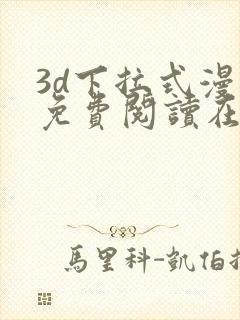 3d下拉式漫
免費閱讀在
馬里科-凱伯